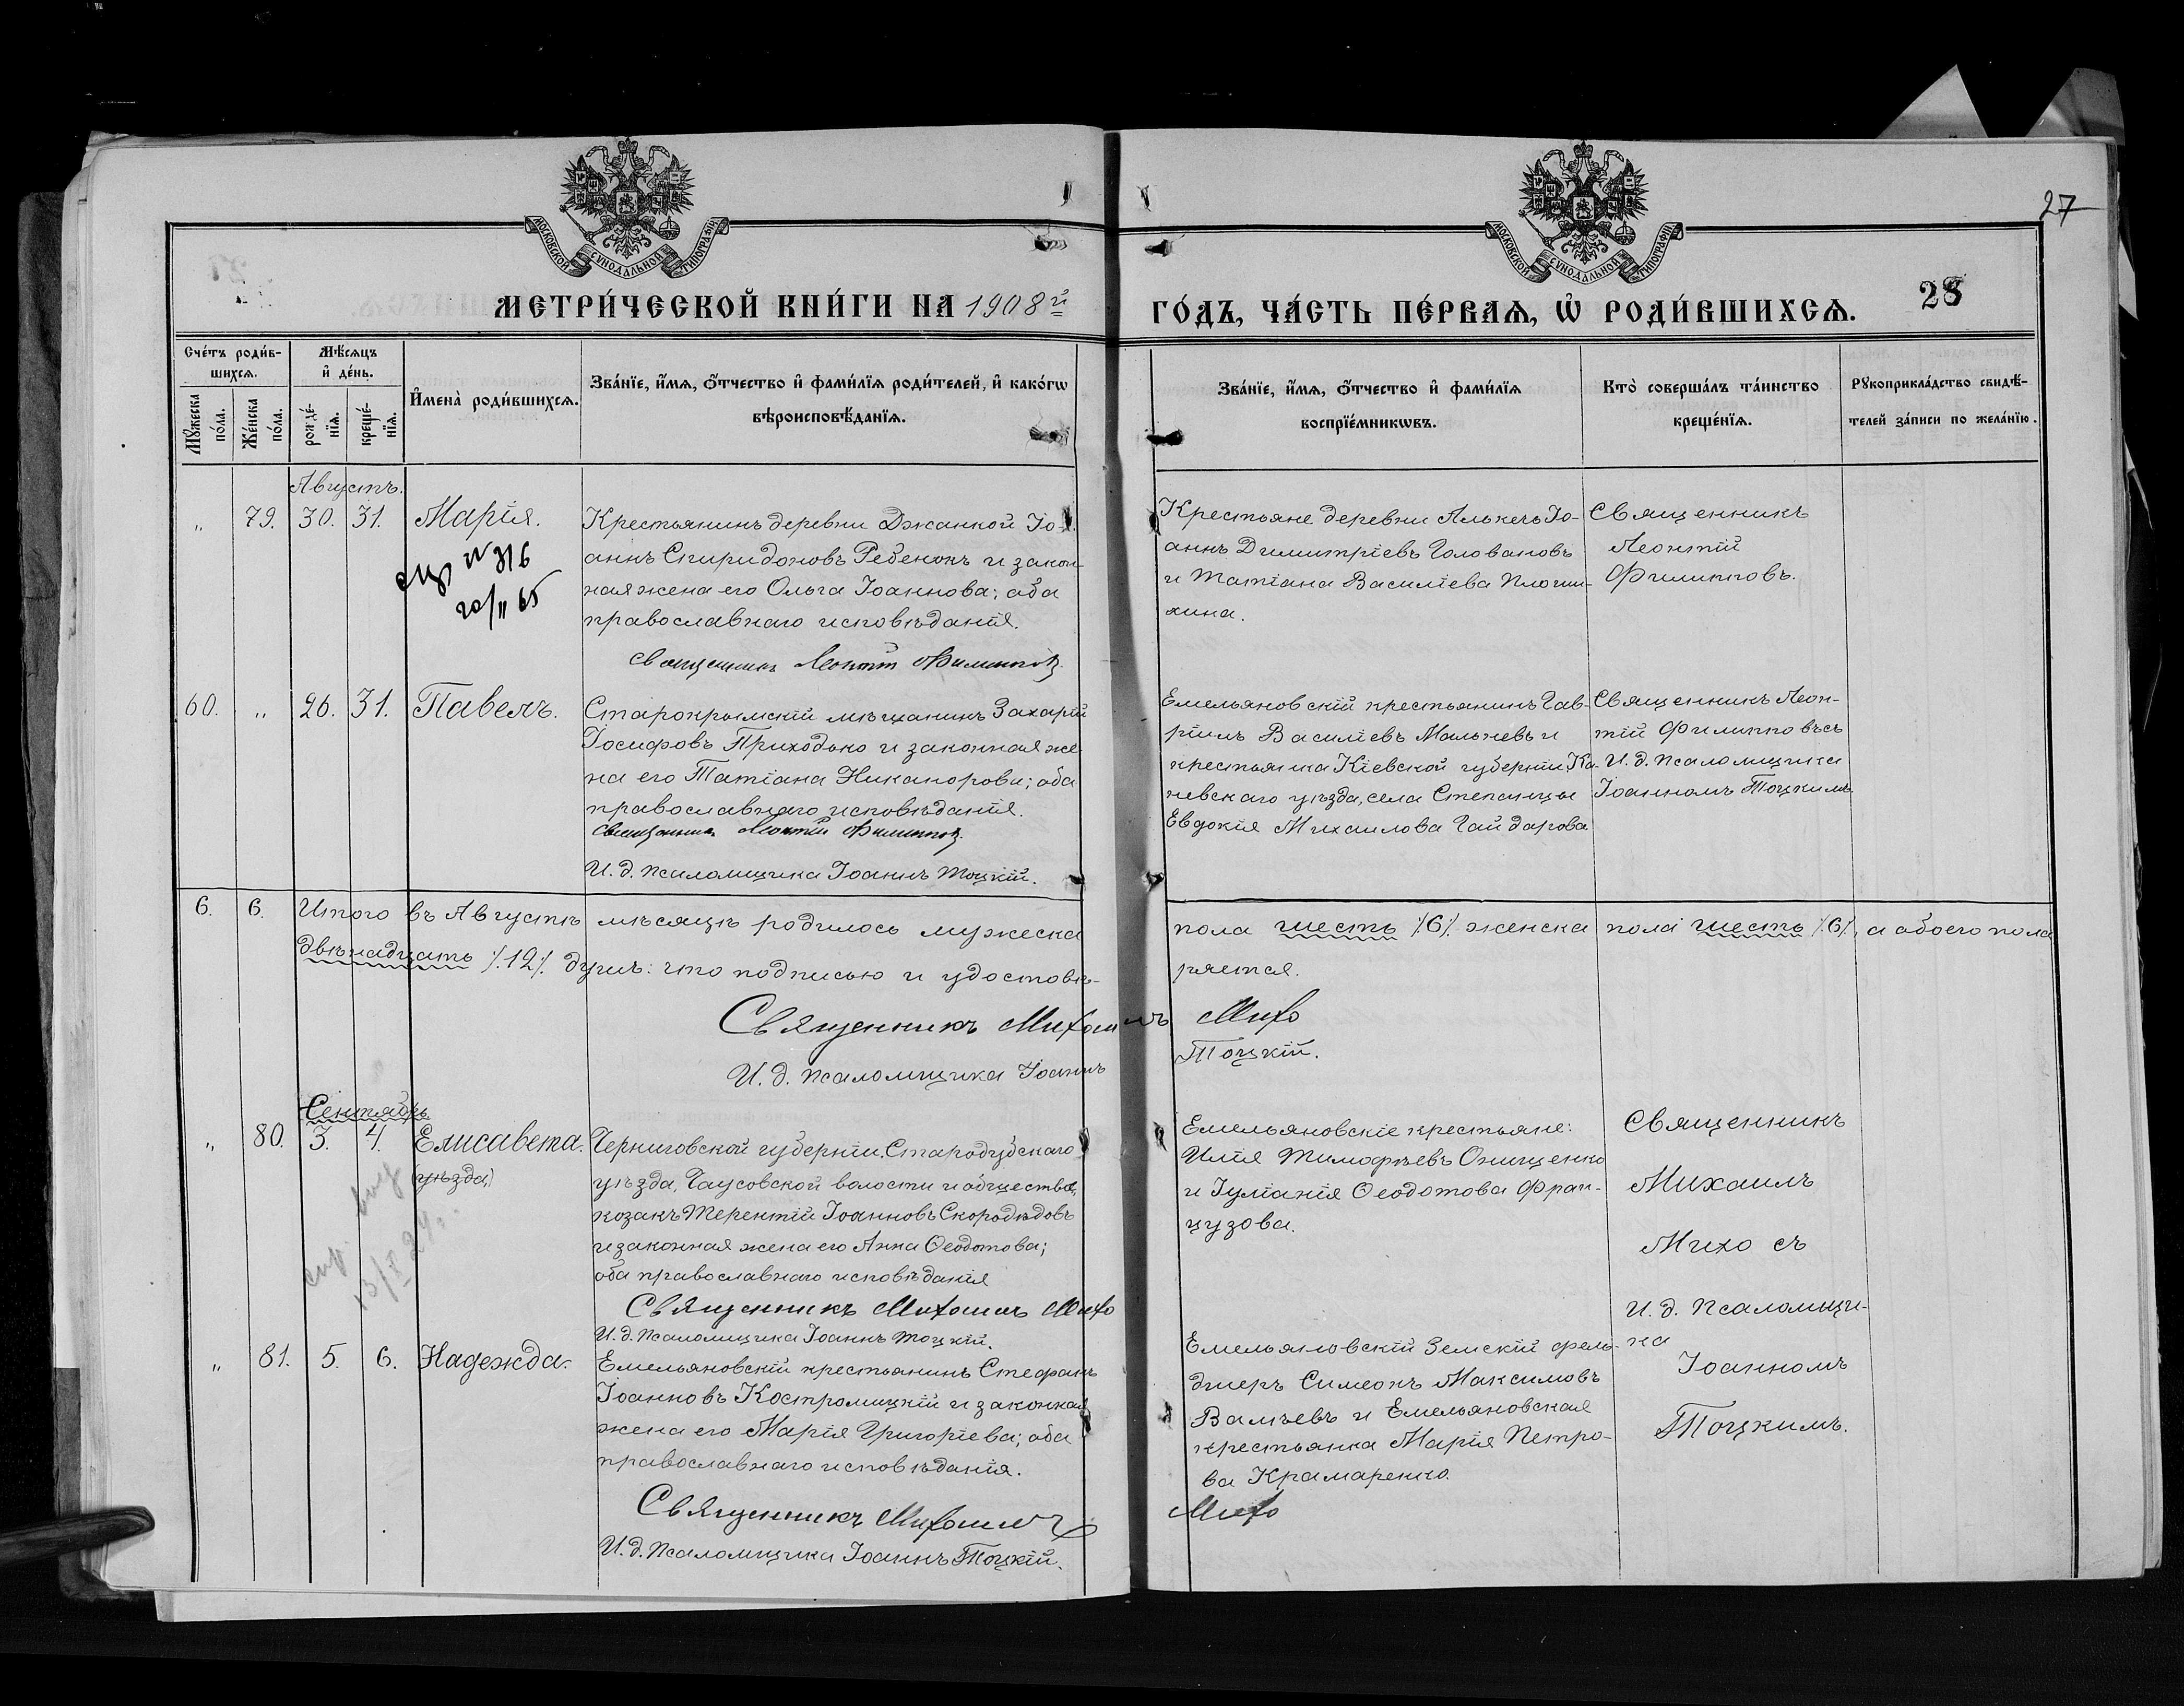 МОСКОВСКОЙ СѴНОДАЛЬНОЙ ТИПОГРАФІИ
МОСКОВСКОЙ СѴНОДАЛЬНОЙ ТИПОГРАФІИ
27
МЕТРИ́ЧЕСКОЙ КНИ́ГИ НА 1908й
ГО́ДЪ, ЧА́СТЬ ПЕ́РВАѦ, Ѡ҆ РОДИ́ВШИХСѦ.
28
Сче́тъ роди́в-
шихсѧ.
Мѣ́сѧцъ
и҆ де́нь.
И҆мена̀ роди́вшихсѧ.
Зва́нїе, и҆́мѧ, ѻ҆́тчество и҆ фами́лїѧ роди́телей, и҆ како́гѡ
вѣроисповѣ́данїѧ.
Мꙋ́жеска
по́ла.
Же́нска
по́ла.
рожде́-
нїѧ.
креще́-
нїѧ.
Зва́нїе, и҆́мѧ, ѻ҆́тчество и҆ фами́лїѧ
воспрїе́мникѡвъ.
Кто̀ соверша́лъ та́инство
креще́нїѧ.
Рꙋкоприкла́дство свидѣ́-
телей за́писи по жела́нїю.
Августъ.
" 79. 30. 31. Марія.
№ 316
20/II 65
Крестьянинъ деревни Джанкой Іо-
аннъ Спиридоновъ Ребенокъ и закон-
ная жена его Ольга Іоаннова; оба
православнаго исповѣданія.
Священникъ Леонтій Филипповъ.
Крестьяне деревни Алькечь Іо-
аннъ Димитріевъ Головановъ
и Татіана Василіева
хина.
Священникъ
Леонтій
Филипповъ.
60. " 26. 31. Павелъ.
Старокрымскій мѣщанинъ Захарій
Іосифовъ Приходько и законная же-
на его Татіана Никанорова; оба
православнаго исповѣданія.
Священникъ Леонтій Филипповъ.
И. д. псаломщика Іоаннъ Тоцкій.
Емельяновскій крестьянинъ Гав-
ріилъ Василіевъ Мальневъ и
крестьянка Кіевской губерніи, Ка-
невскаго уѣзда, села Степанцы
Евдокія Михаилова Гайдарова.
Священникъ Леон-
тій Филипповъ съ
И. д. псаломщика
Іоанномъ Тоцкимъ.
6. 6. Итого въ Августѣ мѣсяцѣ родилось мужеска
пола шесть /6/ женска пола шесть /6/, а обоего пола
двѣнадцать /12/ душъ: что подписью и удостовѣ-
ряется.
Священникъ Михаилъ Михо
И. д. псаломщика Іоаннъ Тоцкій.
Сентябрь
" 80. 3. 4. Елисавета.
(уѣзда,)
13/II 24
Черниговской губерніи, Стародубскаго
уѣзда, Чаусовской волости и общества,
козакъ Терентій Іоанновъ Скородѣдовъ
и законная жена его Анна Ѳеодотова;
оба православнаго исповѣданія
Священникъ Михаилъ Михо
И. д. псаломщика Іоаннъ Тоцкій.
Емельяновскіе крестьяне:
Илія Тимофѣевъ Онищенко
и Іуліанія Ѳеодотова Фран-
цузова.
Священникъ
Михаилъ
Михо съ
И. д. псаломщи-
ка
Іоанномъ
Тоцкимъ.
" 81. 5. 6. Надежда.
Емельяновскій крестьянинъ Стефанъ
Іоанновъ Костромицкій и законная
жена его Марія Григоріева; оба
православнаго исповѣданія.
Священникъ Михаилъ
И. д. псаломщика Іоаннъ Тоцкій.
Емельяновскій Земскій фель-
дшеръ Симеонъ Максимовъ
Валчевъ и Емельяновская
крестьянка Марія Петро-
ва Крамаренко.
Михо